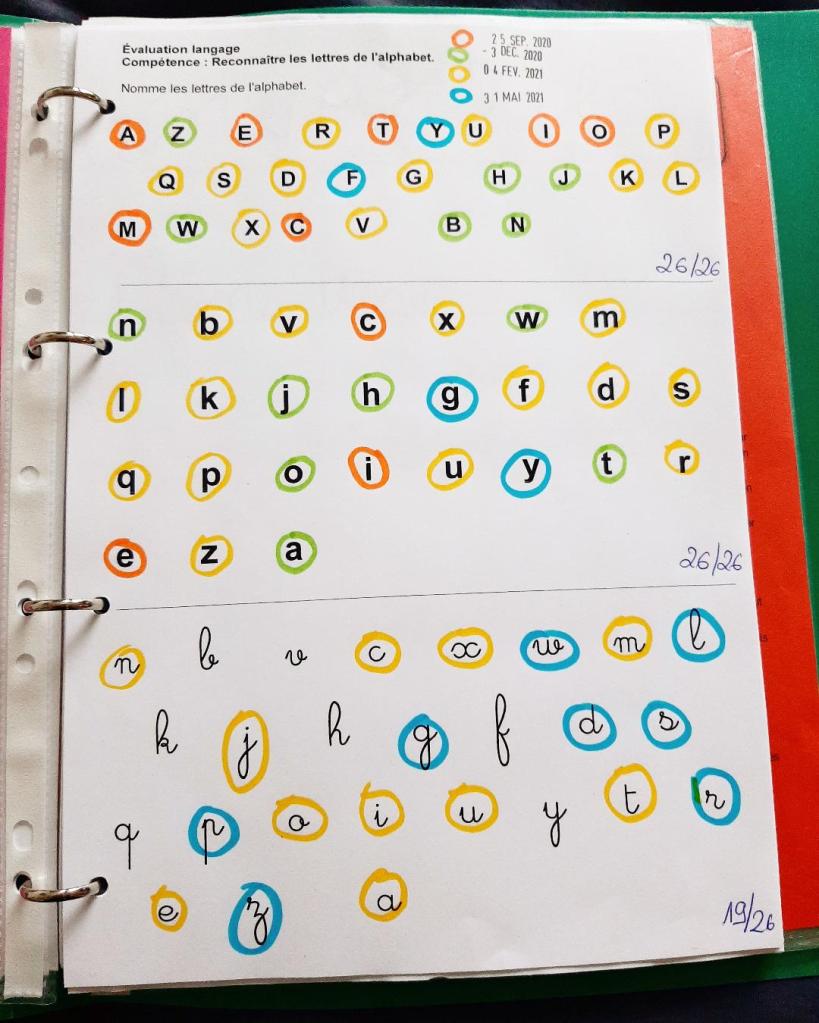 Évaluation langage
Compétence : Reconnaître les lettres de l'alphabet.
Nomme les lettres de l'alphabet.
25 SEP. 2020
- 3 DEC. 2020
04 FEV. 2021
31 MAI 2021
A Z E R T Y U I O P
Q S D F G H J K L
M W X C V B N
26/26
n b v c x w m
l k j h g f d s
q p o i u y t r
e z a
26/26
n b v c x w m l
k j h g f d s
q p o i u y t r
e z a
19/26